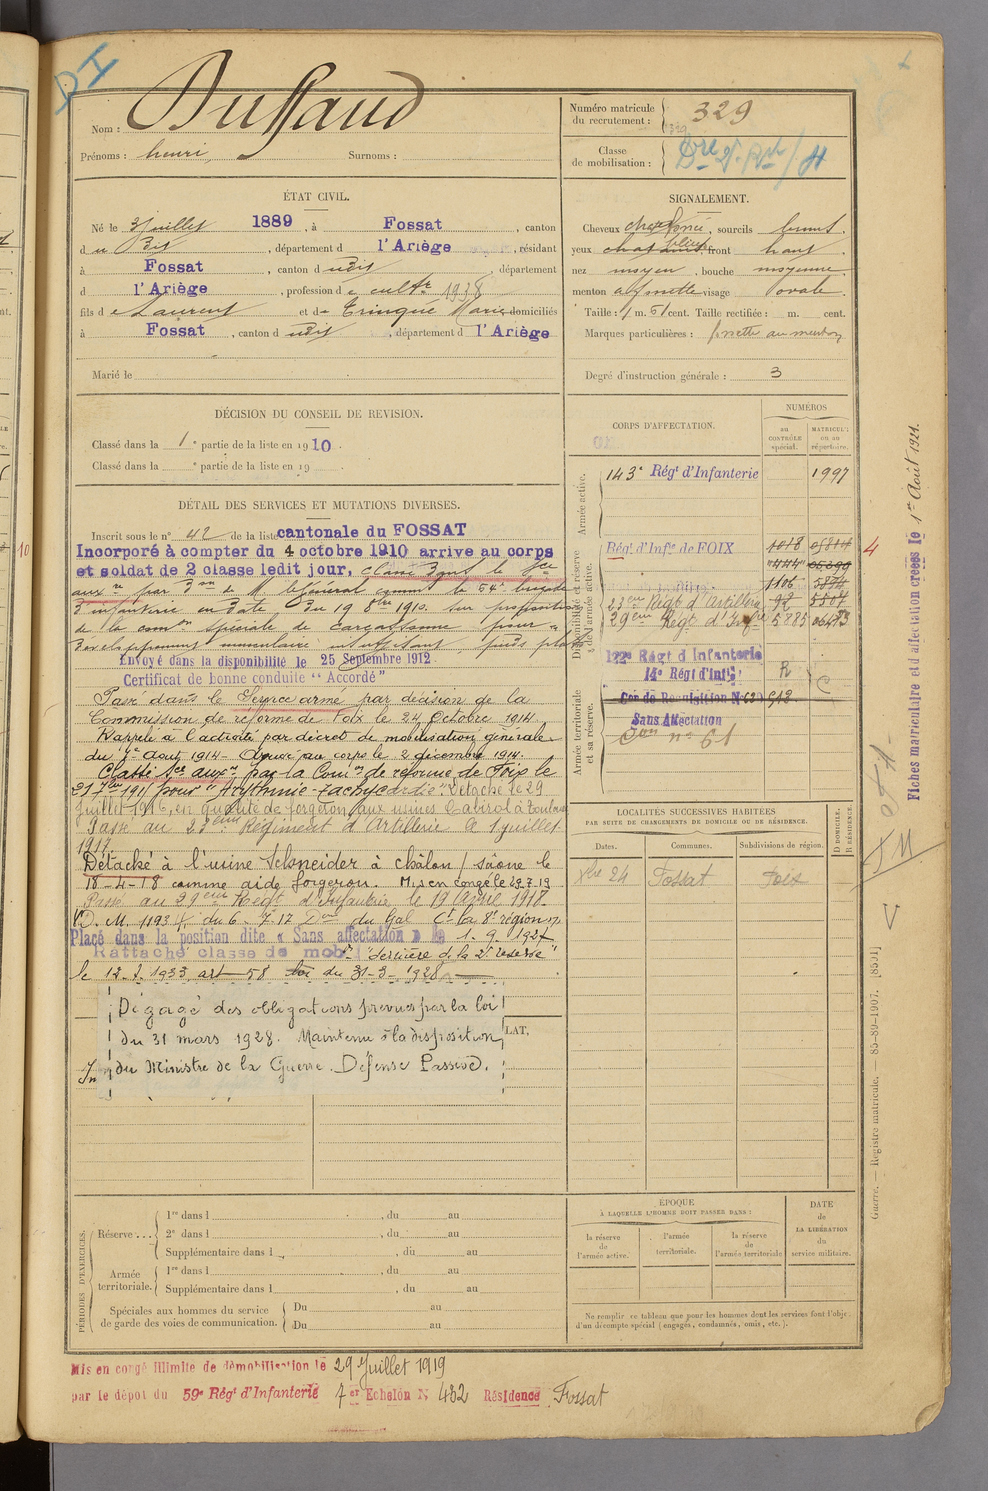 DI
Nom : Dussaud
Prénoms : henri, Surnoms :
Numéro matricule du recrutement : 329
Classe de mobilisation :
ÉTAT CIVIL.
Né le 3 juillet 1889, à Fossat, canton
du dit, département d l'Ariège, résidant
à Fossat, canton dudit, département
d l'Ariège, profession de cultr 1938
fils de Laurent et de Trinqué Marie domiciliés
à Fossat, canton d udit, département d l'Ariège
Marié le
SIGNALEMENT.
Cheveux, sourcils bruns.
yeux, front haut
nez moyen, bouche moyenne
menton à fossette visage ovale.
Taille : 1 m. 61 cent. Taille rectifiée : m. cent.
Marques particulières : fossette au menton
Degré d'instruction générale : 3
DÉCISION DU CONSEIL DE REVISION.
Classé dans la 1e partie de la liste en 1910.
Classé dans la e partie de la liste en 19
DÉTAIL DES SERVICES ET MUTATIONS DIVERSES.
Inscrit sous le n° 42 de la liste cantonale du FOSSAT
Incorporé à compter du 4 octobre 1910 arrive au corps
et soldat de 2 classe ledit jour, classé dans le sce
auxre par don de M le Général commt la 64e brigade
d'infanterie en date du 19 8bre 1910. sur proposition
de la comon spéciale de Carcassonne pour
développement musculaire insuffisant
Envoyé dans la disponibilité le 25 Septembre 1912.
Certificat de bonne conduite "Accordé"
Passé dans le Service armé par décision de la
Commission de réforme de Foix le 24 Octobre 1914.
Rappelé à l'activité par décret de mobilisation générale
du 1er Août 1914 - Arrivé au corps le 2 décembre 1914.
Classé Sce auxre par la Comon de réforme de Foix le
pour "Arythmie-tachycardie". Détaché le 29
Juillet 1916, en qualité de forgeron, aux usines Cabirol à Toulouse
Passé au 23ème Régiment d'Artillerie le 1 juillet
1917.
Détaché à l'usine Schneider à châlon / saône le
18-4-18 comme aide forgeron. Mis en congé le 29.7.19
Passé au 29ème Régt d'Infanterie le 19 Avril 1918.
D.M. 1193 du 6.7.17 Don du Gal Ct la 8e région
Placé dans la position dite « Sans affectation » le 1.9.1927
Rattaché classe de mob "dernière de la 2e réserve"
le 12.2.1933 art 58 loi du 31-3-1928
Dégagé des obligations prévues par la loi
du 31 mars 1928. Maintenu à la disposition
du Ministre de la Guerre. Défense Passive.
LAT,
CORPS D'AFFECTATION.
NUMÉROS
au CONTRÔLE spécial.
MATRICULE ou au répertoire.
Armée active.
143e Régt d'Infanterie 1997
Disponibilité et réserve de l'armée active.
Régt d'Infie de FOIX 1018
"444"
1106
23ème Régt d'Artillerie 92 5504
29ème Régt d'Infie 5885 06493
Armée territoriale et sa réserve.
122e Régt d'Infanterie
14e Régt d'Infie R
Cer de Réquisition N° 631 912
Sans Affectation
Son n° 61
LOCALITÉS SUCCESSIVES HABITÉES
PAR SUITE DE CHANGEMENTS DE DOMICILE OU DE RÉSIDENCE.
D DOMICILE. R RÉSIDENCE.
Dates. Communes. Subdivisions de région.
Xbre 24 Fossat Foix
PÉRIODES D'EXERCICES.
Réserve . . . 1re dans l , du au
2e dans l , du au
Supplémentaire dans l , du au
Armée territoriale. 1re dans l , du au
Supplémentaire dans l , du au
Spéciales aux hommes du service de garde des voies de communication. Du au
Du au
ÉPOQUE
À LAQUELLE L'HOMME DOIT PASSER DANS :
la réserve de l'armée active.
l'armée territoriale.
la réserve de l'armée territoriale
DATE de LA LIBÉRATION du service militaire.
Ne remplir ce tableau que pour les hommes dont les services font l'objet
d'un décompte spécial (engagés, condamnés, omis, etc.).
Mis en congé illimité de démobilisation le 29 Juillet 1919
par le dépôt du 59e Régt d'Infanterie 7er Echelon N° 432 Résidence Fossat
Fiches matriculaire et d'affectation créées le 1er Août 1921.
Guerre. — Registre matricule. — 85-89-1907. [8531]